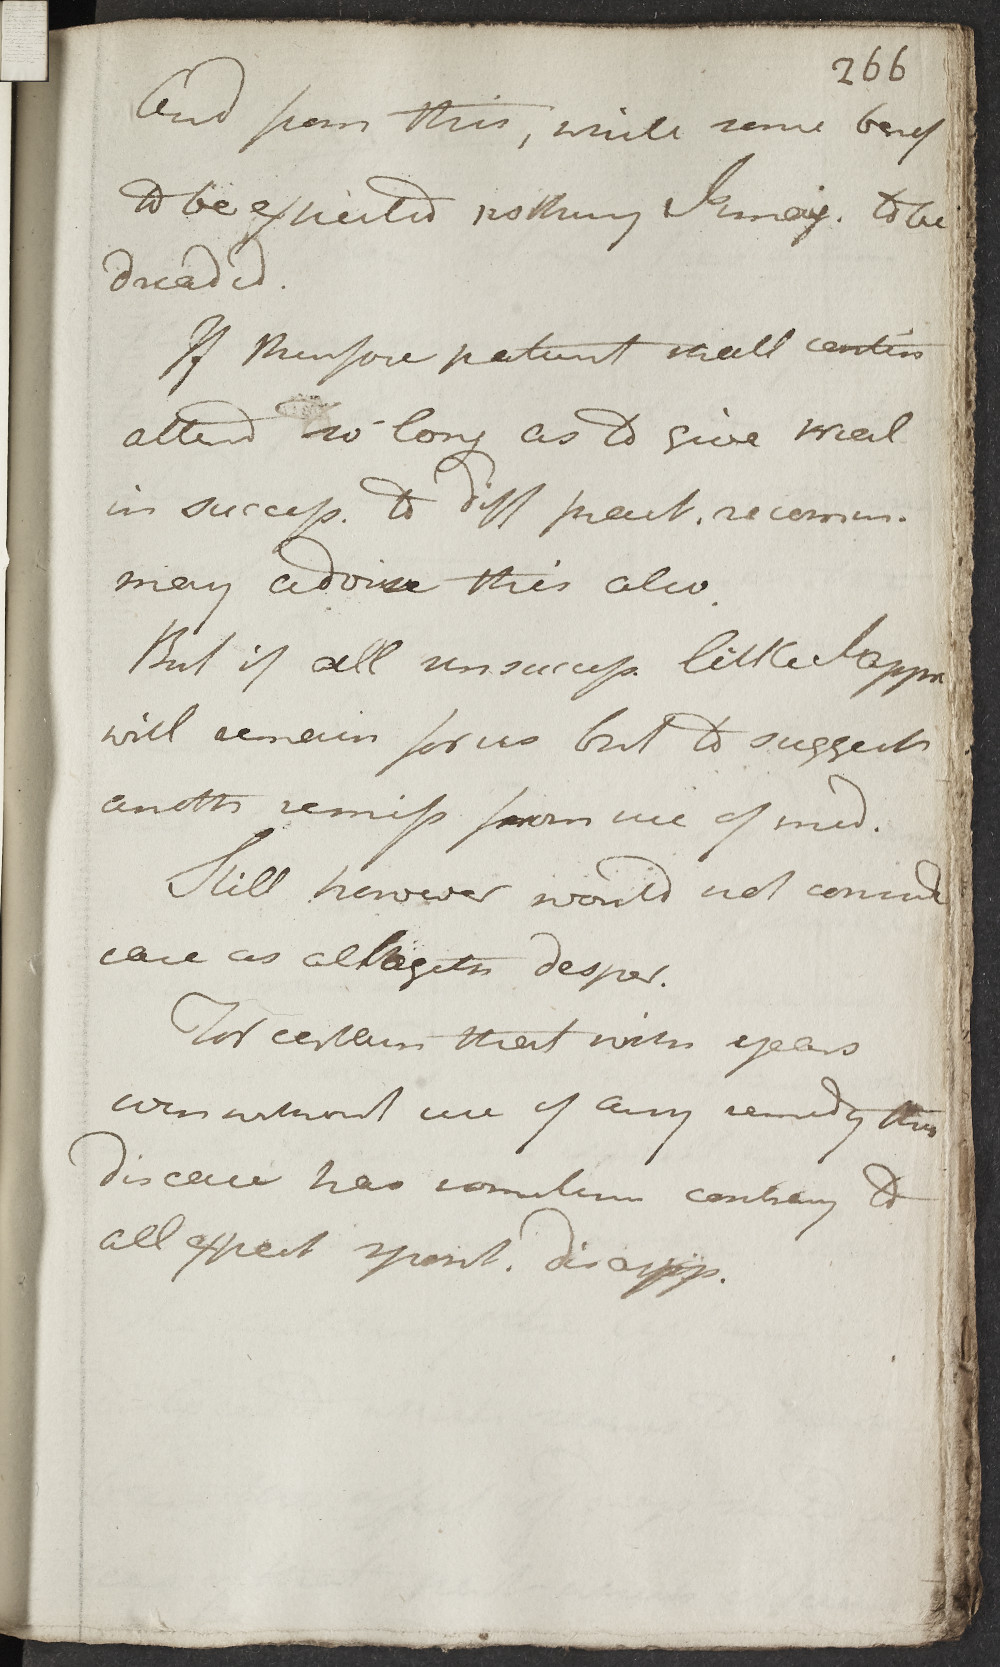 266
And from this, while some benef
to be expected nothing I imag. to be
dreaded.
If therefore patient shall contin
attend so long as to give trial
in success. to diff pract. recomm.
may advise this also.
But if all unsuccess. little I appre
will remain for us but to suggest
anoth remiss from use of med.
Still however would not consid
case as altogeth desper.
For certain that with years
even without use of any remedy this
disease has sometim contrary to
all expect spont. disapp.